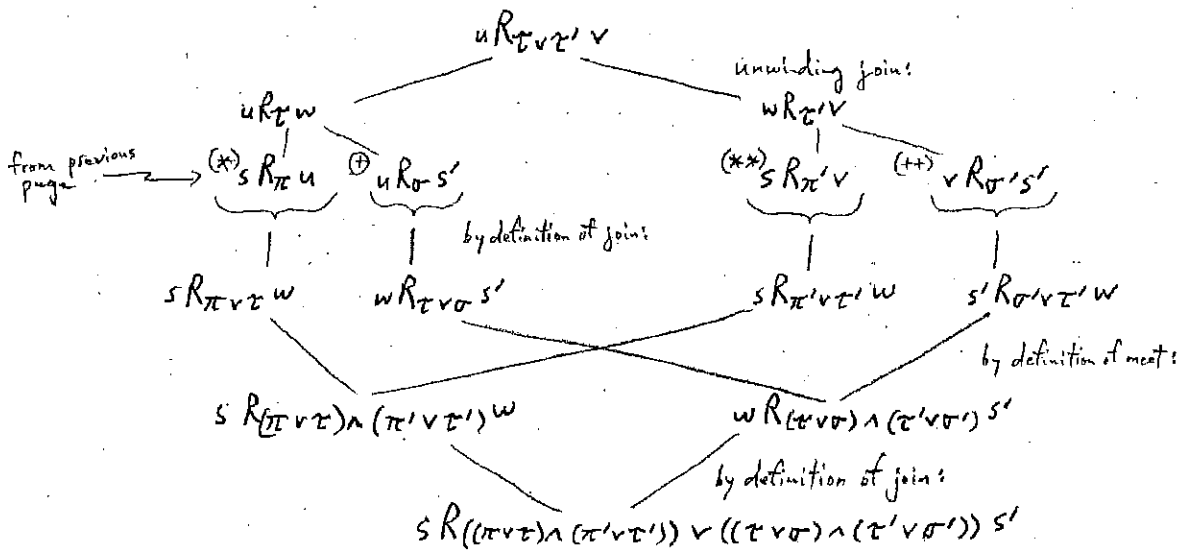 u R_{τ∨τ'} v
unwinding join:
u R_τ w w R_{τ'} v
from previous page (*) s R_π u (+) u R_σ s' (**) s R_{π'} v (++) v R_{σ'} s'
by definition of join:
s R_{π∨τ} w w R_{τ∨σ} s' s R_{π'∨τ'} w s' R_{σ'∨τ'} w
by definition of meet:
s R_{(π∨τ)∧(π'∨τ')} w w R_{(τ∨σ)∧(τ'∨σ')} s'
by definition of join:
s R_{((π∨τ)∧(π'∨τ'))∨((τ∨σ)∧(τ'∨σ'))} s'